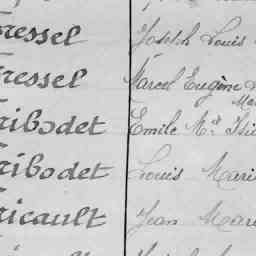 ressel Joseph Louis
ressel Marcel Eugène
ribodet Emile M.el Isi
ribodet Louis Mari
ricault Jean Mari